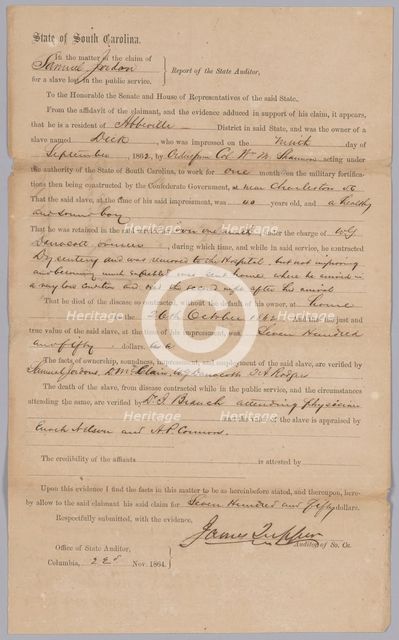 State of South Carolina.
In the matter of the claim of
Samuel Jordan } Report of the State Auditor,
for a slave lost in the public service.
To the Honorable the Senate and House of Representatives of the said State.
From the affidavit of the claimant, and the evidence adduced in support of his claim, it appears,
that he is a resident of Abbeville District in said State, and was the owner of a
slave named Dick, who was impressed on the Ninth day of
September, 1862, by Order from Col Wm M Shannon acting under
the authority of the State of South Carolina, to work for one month on the military fortifica-
tions then being constructed by the Confederate Government, at near Charleston So
That the said slave, at the time of his said impressment, was 40 years old, and a healthy
and sound boy
That he was retained in the said service over one month under the charge of W G
overseer, during which time, and while in said service, he contracted
Dysentery and was removed to the Hospital, but not improving
and becoming much enfeebled was sent home where he arrived in
a very low condition and died the second night after his arrival
That he died of the disease so contracted, without the default of his owner, at home
the 26th October 1862 and that the just and
true value of the said slave, at the time of his impressment, was Seven Hundred
and fifty dollars.
The facts of ownership, soundness, impressment, and employment of the said slave, are verified by
Samuel Jordons, R McClain, W G T A Rodgers
The death of the slave, from disease contracted while in the public service, and the circumstances
attending the same, are verified by Dr I Branch attending physician
and the value of the slave is appraised by
Enoch Nelson and A P Connors.
The credibility of the affiants is attested by
Upon this evidence I find the facts in this matter to be as hereinbefore stated, and thereupon, here-
by allow to the said claimant his said claim for Seven Hundred and fifty dollars.
Respectfully submitted, with the evidence.
James Tupper
Auditor of So. Ca.
Office of State Auditor,
Columbia, 22d Nov. 1864.
Heritage Heritage
Heritage Heritage
Heritage Heritage
Heritage Heritage